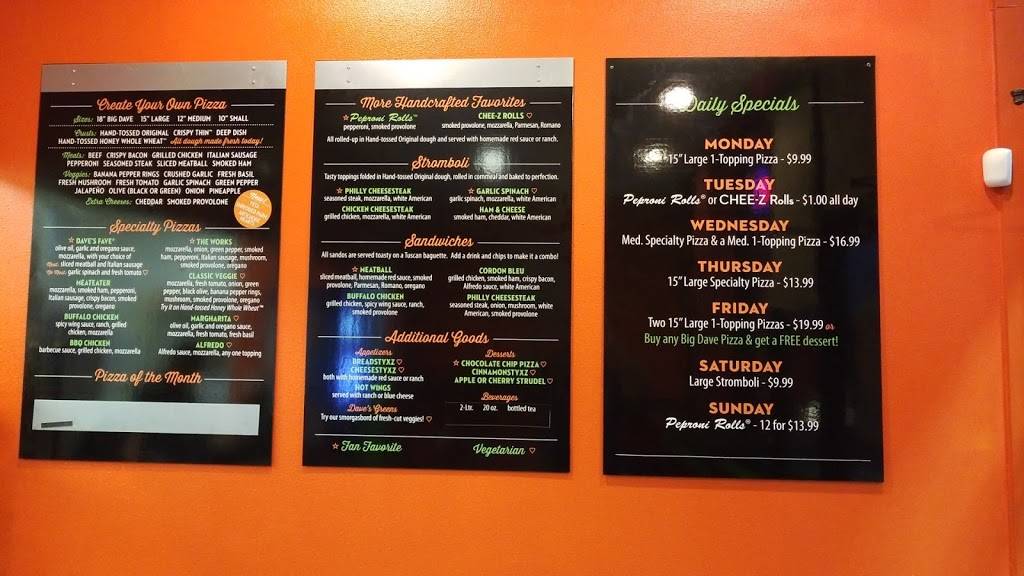 Create Your Own Pizza
Sizes: 18" BIG DAVE 15" LARGE 12" MEDIUM 10" SMALL
Crusts: HAND-TOSSED ORIGINAL CRISPY THIN™ DEEP DISH
HAND-TOSSED HONEY WHOLE WHEAT™ All dough made fresh today!
Meats: BEEF CRISPY BACON GRILLED CHICKEN ITALIAN SAUSAGE
PEPPERONI SEASONED STEAK SLICED MEATBALL SMOKED HAM
Veggies: BANANA PEPPER RINGS CRUSHED GARLIC FRESH BASIL
FRESH MUSHROOM FRESH TOMATO GARLIC SPINACH GREEN PEPPER
JALAPEÑO OLIVE (BLACK OR GREEN) ONION PINEAPPLE
Extra Cheeses: CHEDDAR SMOKED PROVOLONE
Specialty Pizzas
☆ DAVE'S FAVE®
olive oil, garlic and oregano sauce,
mozzarella, with your choice of
Meat: sliced meatball and Italian sausage
No Meat: garlic spinach and fresh tomato ♡
MEATEATER
mozzarella, smoked ham, pepperoni,
Italian sausage, crispy bacon, smoked
provolone, oregano
BUFFALO CHICKEN
spicy wing sauce, ranch, grilled
chicken, mozzarella
BBQ CHICKEN
barbecue sauce, grilled chicken, mozzarella
☆ THE WORKS
mozzarella, onion, green pepper, smoked
ham, pepperoni, Italian sausage, mushroom,
smoked provolone, oregano
CLASSIC VEGGIE ♡
mozzarella, fresh tomato, onion, green
pepper, black olive, banana pepper rings,
mushroom, smoked provolone, oregano
Try it on Hand-tossed Honey Whole Wheat™
MARGHARITA ♡
olive oil, garlic and oregano sauce,
mozzarella, fresh tomato, fresh basil
ALFREDO ♡
Alfredo sauce, mozzarella, any one topping
Pizza of the Month
More Handcrafted Favorites
☆ Peproni Rolls™
pepperoni, smoked provolone
CHEE-Z ROLLS ♡
smoked provolone, mozzarella, Parmesan, Romano
All rolled-up in Hand-tossed Original dough and served with homemade red sauce or ranch.
Stromboli
Tasty toppings folded in Hand-tossed Original dough, rolled in cornmeal and baked to perfection.
☆ PHILLY CHEESESTEAK
seasoned steak, mozzarella, white American
CHICKEN CHEESESTEAK
grilled chicken, mozzarella, white American
☆ GARLIC SPINACH ♡
garlic spinach, mozzarella, white American
HAM & CHEESE
smoked ham, cheddar, white American
Sandwiches
All sandos are served toasty on a Tuscan baguette. Add a drink and chips to make it a combo!
☆ MEATBALL
sliced meatball, homemade red sauce, smoked
provolone, Parmesan, Romano, oregano
BUFFALO CHICKEN
grilled chicken, spicy wing sauce, ranch,
smoked provolone
CORDON BLEU
grilled chicken, smoked ham, crispy bacon,
Alfredo sauce, white American
PHILLY CHEESESTEAK
seasoned steak, onion, mushroom, white
American, smoked provolone
Additional Goods
Appetizers
BREADSTYXZ ♡
CHEESESTYXZ ♡
both with homemade red sauce or ranch
HOT WINGS
served with ranch or blue cheese
Dave's Greens
Try our smorgasbord of fresh-cut veggies! ♡
Desserts
☆ CHOCOLATE CHIP PIZZA ♡
CINNAMONSTYXZ ♡
APPLE OR CHERRY STRUDEL ♡
Beverages
2-Ltr. 20 oz. bottled tea
☆ Fan Favorite
Vegetarian ♡
Daily Specials
MONDAY
15" Large 1-Topping Pizza - $9.99
TUESDAY
Peproni Rolls® or CHEE-Z Rolls - $1.00 all day
WEDNESDAY
Med. Specialty Pizza & a Med. 1-Topping Pizza - $16.99
THURSDAY
15" Large Specialty Pizza - $13.99
FRIDAY
Two 15" Large 1-Topping Pizzas - $19.99 or
Buy any Big Dave Pizza & get a FREE dessert!
SATURDAY
Large Stromboli - $9.99
SUNDAY
Peproni Rolls® - 12 for $13.99